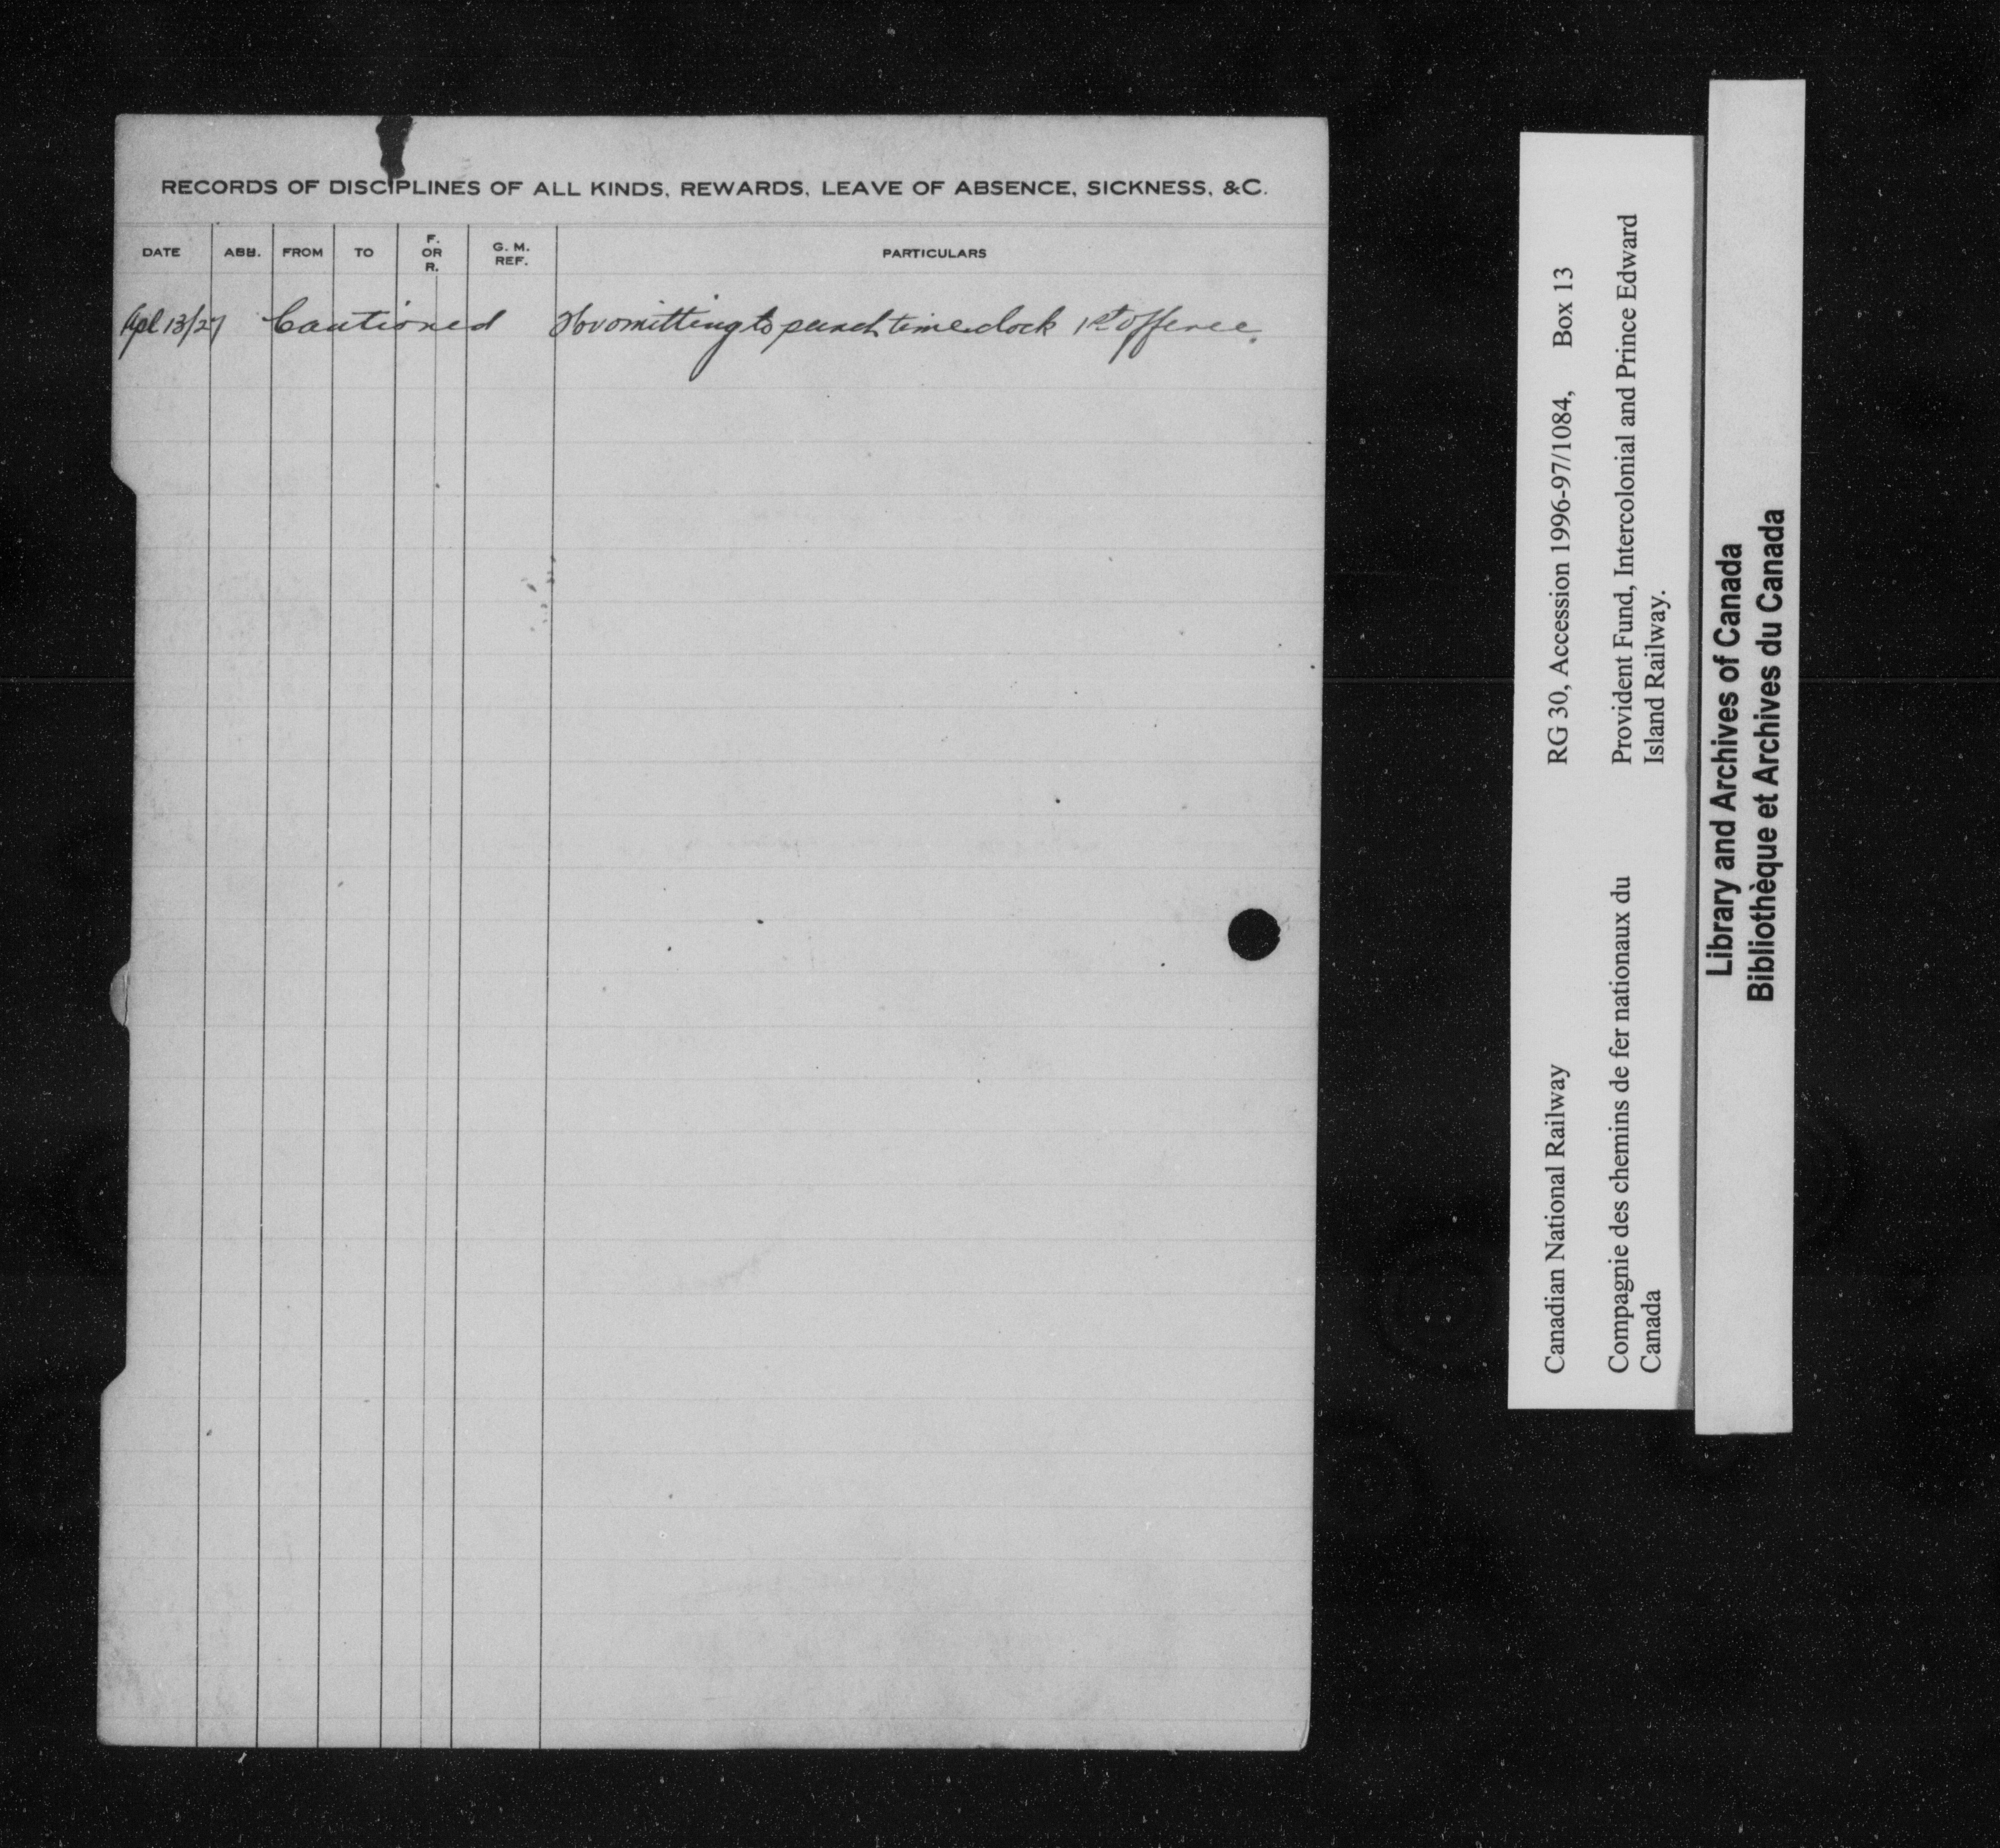 RECORDS OF DISCIPLINES OF ALL KINDS, REWARDS, LEAVE OF ABSENCE, SICKNESS, &C.
DATE ABB. FROM TO F. OR R. G. M. REF. PARTICULARS
Apl 13/27 Cautioned For omitting to punch time clock 1st offence.
Canadian National Railway RG 30, Accession 1996-97/1084, Box 13
Compagnie des chemins de fer nationaux du Provident Fund, Intercolonial and Prince Edward
Canada Island Railway.
Library and Archives of Canada
Bibliothèque et Archives du Canada